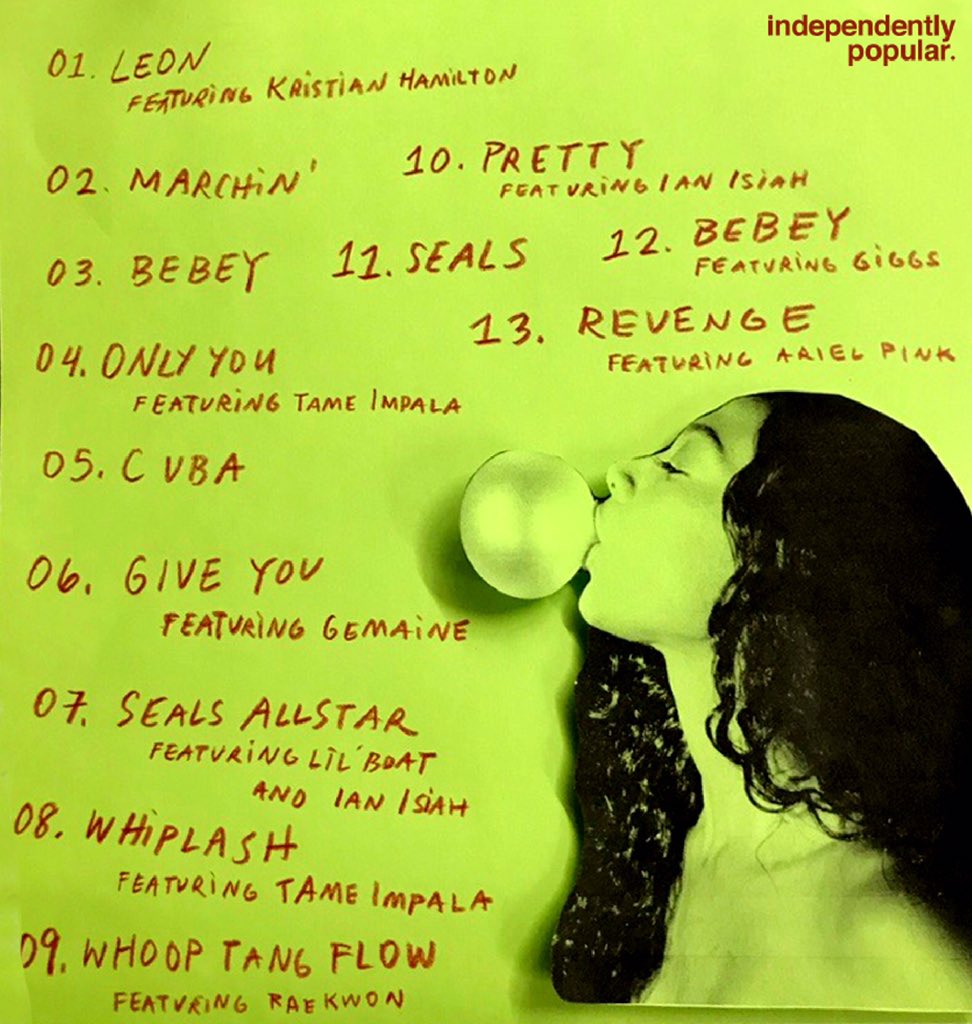 independently
popular.
01. LEON
FEATURING KRISTIAN HAMILTON
02. MARCHIN'
03. BEBEY
04. ONLY YOU
FEATURING TAME IMPALA
05. CUBA
06. GIVE YOU
FEATURING GEMAINE
07. SEALS ALLSTAR
FEATURING LIL' BOAT
AND IAN ISIAH
08. WHIPLASH
FEATURING TAME IMPALA
09. WHOOP TANG FLOW
FEATURING RAEKWON
10. PRETTY
FEATURING IAN ISIAH
11. SEALS
12. BEBEY
FEATURING GIGGS
13. REVENGE
FEATURING ARIEL PINK